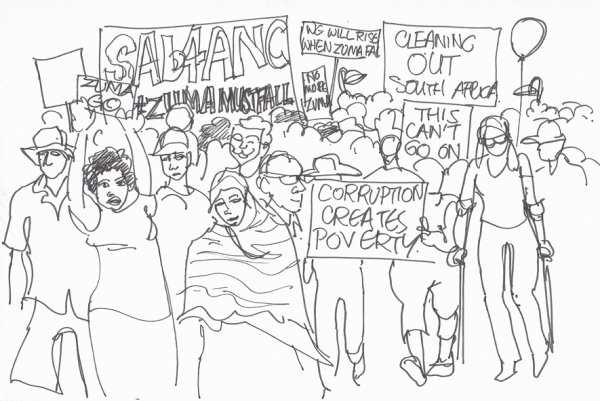 SAL4ANC
#ZUMAMUSTFALL
WILL RISE
WHEN ZUMA FAL
NO
MORE
ZUMA
CLEANING
OUT
SOUTH AFRICA
ZUMA
GO
THIS
CAN'T
GO ON
CORRUPTION
CREATES
POVERTY